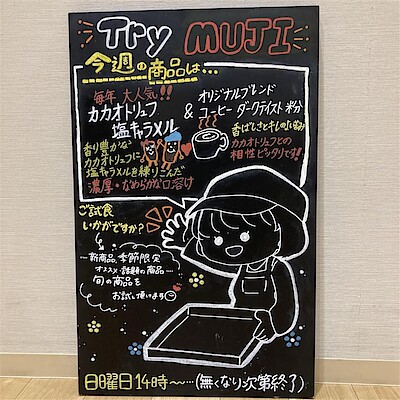 Try MUJI
今週の商品は…
毎年 大人気!!
カカオトリュフ
塩キャラメル
香り豊かな
カカオトリュフに
塩キャラメルを練りこんだ
濃厚・なめらかな口溶け
&
オリジナルブレンド
コーヒー ダークテイスト 粉
香ばしさとキレのいい苦み
カカオトリュフとの
相性ピッタリです!!
ご試食
いかがですか?
新商品、季節限定
オススメ・話題の商品…
旬の商品を
お試し頂けます
日曜日14時〜…(無くなり次第終了)